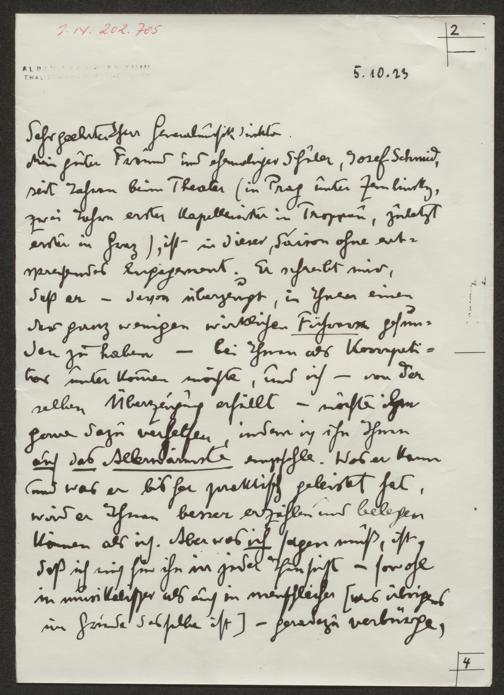 2
5.10.23
Sehr geehrter Herr Generalmusikdirektor.
Mein guter Freund und ehemaliger Schüler, Josef Schmid,
seit Jahren beim Theater (in Prag unter Zemlinsky,
zwei Jahre erster Kapellmeister in Troppau, zuletzt
erster in Graz), ist in dieser Saison ohne ent-
sprechendes Engagement. Er schreibt mir,
daß er – davon überzeugt, in Ihnen einen
der ganz wenigen wirklichen Führer gefun-
den zu haben – bei Ihnen als Korrepeti-
tor unterkommen möchte, und ich – von der
selben Überzeugung erfüllt – möchte ihm
gerne dazu verhelfen, indem ich ihn Ihnen
auf das Allerwärmste empfehle. Was er kann
und was er bisher praktisch geleistet hat,
wird er Ihnen besser erzählen und belegen
können als ich. Aber was ich sagen muß, ist,
daß ich mich für ihn in jeder Hinsicht – sowohl
in musikalischer als auch in menschlicher [was übrigens
im Grunde dasselbe ist] – geradezu verbürge,
4